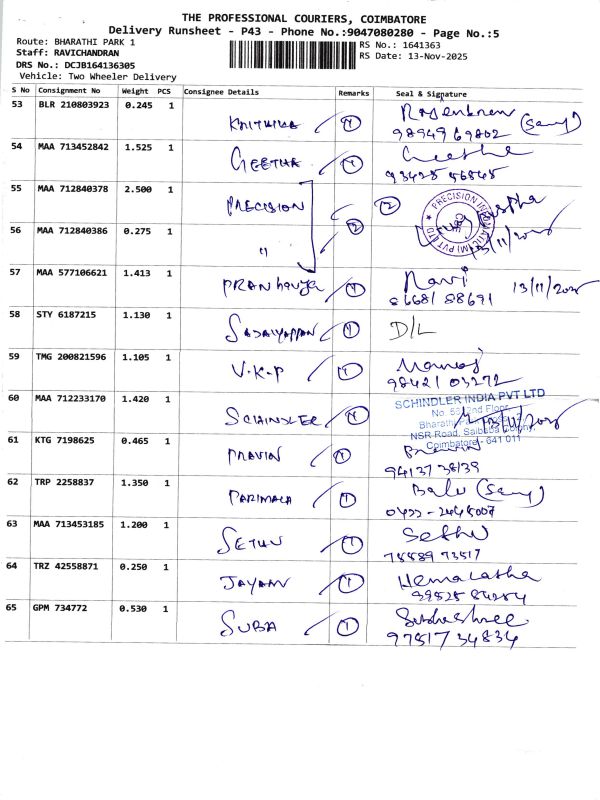 THE PROFESSIONAL COURIERS, COIMBATORE
Delivery Runsheet - P43 - Phone No.:9047080280 - Page No.:5
Route: BHARATHI PARK 1
Staff: RAVICHANDRAN
DRS No.: DCJB164136305
Vehicle: Two Wheeler Delivery
RS No.: 1641363
RS Date: 13-Nov-2025
S No Consignment No Weight PCS Consignee Details Remarks Seal & Signature
53 BLR 210803923 0.245 1 KRITHIKA 1
98949 69802
54 MAA 713452842 1.525 1 GEETHA 1 Geetha
55 MAA 712840378 2.500 1 PRECISION 2
PRECISION INFOMATIC (M) PVT LTD
13/11/2025
56 MAA 712840386 0.275 1 " 2
57 MAA 577106621 1.413 1 1 Ravi 13/11/2025
86681 88691
58 STY 6187215 1.130 1 1 D/L
59 TMG 200821596 1.105 1 V.K.P 1 Manoj
98421 03272
60 MAA 712233170 1.420 1 SCHINDLER 1
SCHINDLER INDIA PVT LTD
2nd Floor,
NSR Road, Saibaba Colony,
Coimbatore - 641 011
13/11/2025
61 KTG 7198625 0.465 1 PRAVIN 1 Pravin
94137 38139
62 TRP 2258837 1.350 1 PARIMALA 1 Balu
63 MAA 713453185 1.200 1 SETHU 1 Sethu
78889 73517
64 TRZ 42558871 0.250 1 JAYAM 1 Hemalatha
65 GPM 734772 0.530 1 SUBA 1
97817 34834